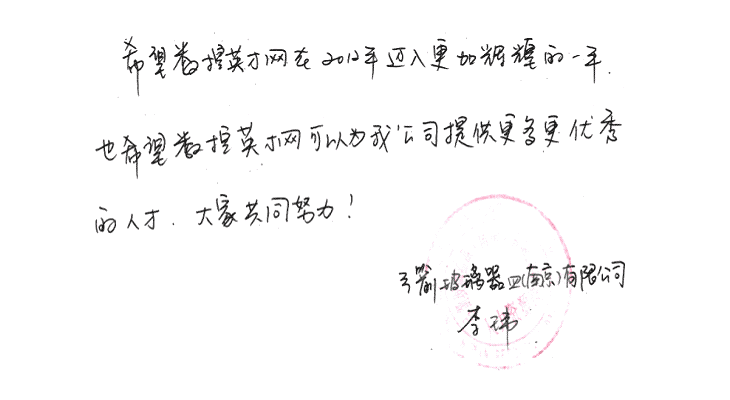 希望数控英才网在2012年迈入更加辉煌的一年.
也希望数控英才网可以为我公司提供更多更优秀
的人才.大家共同努力!
玻璃器皿(南京)有限公司
李玮